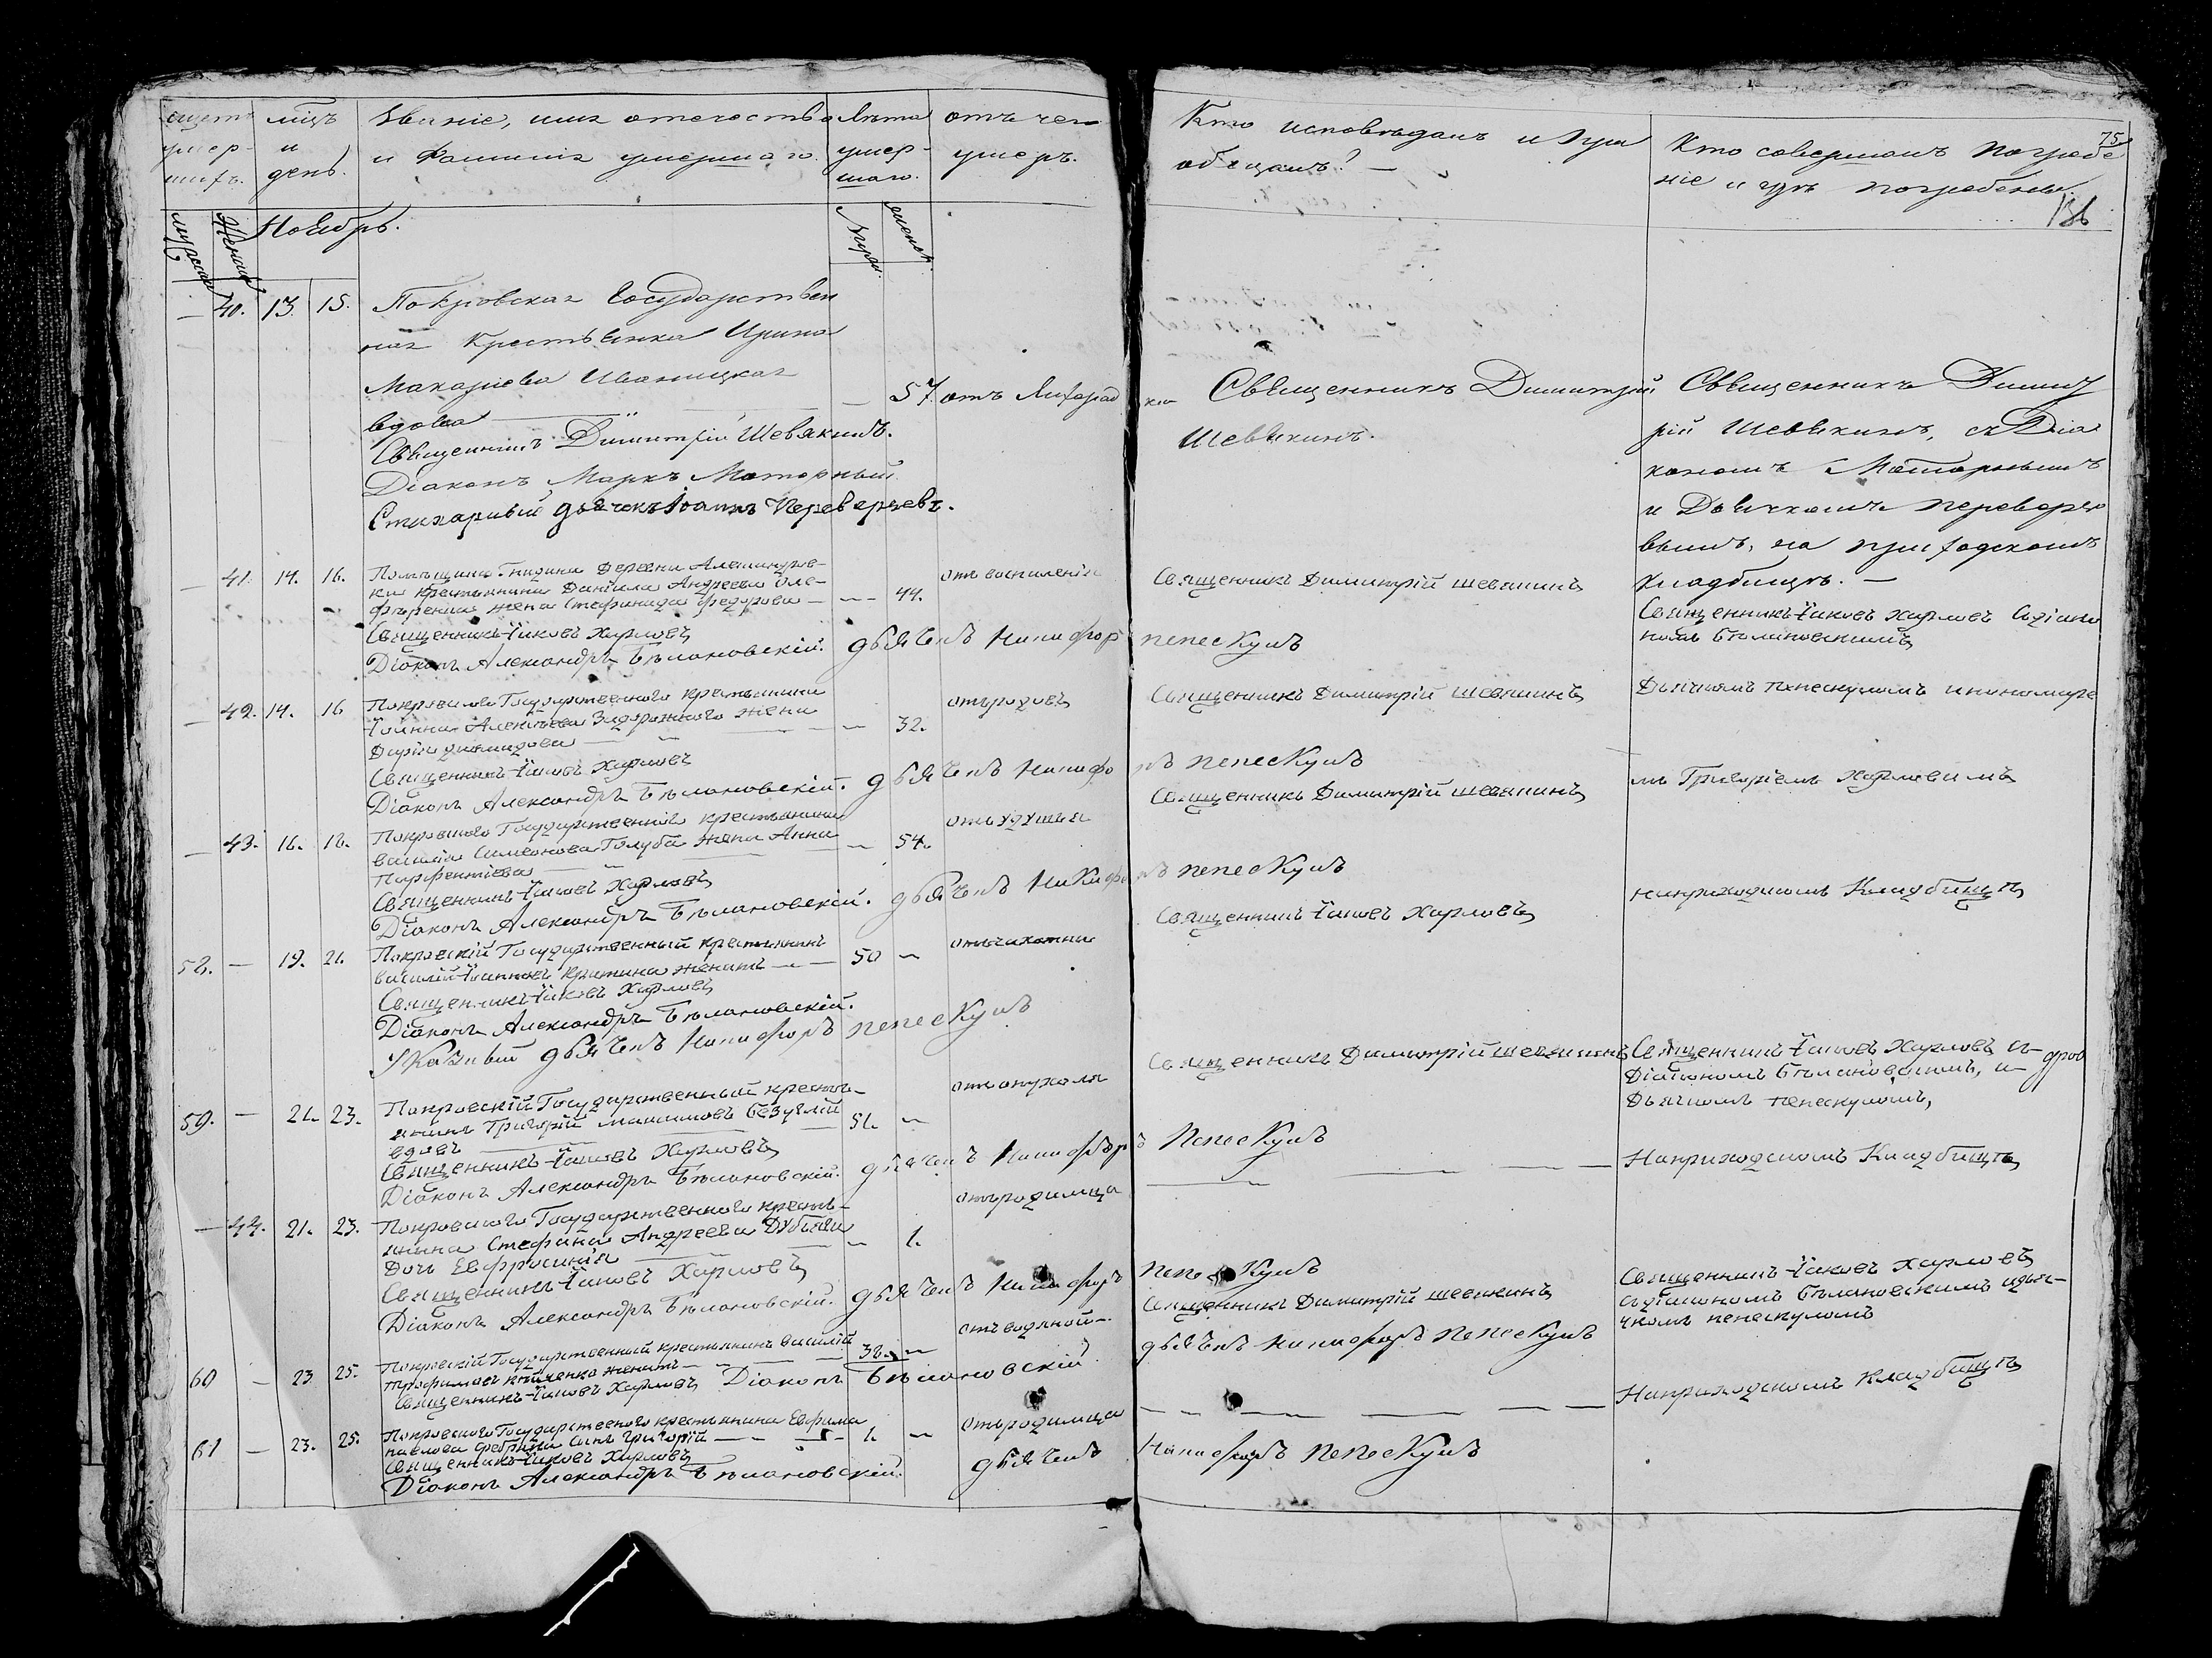 щетъ умер- шихъ.
мцъ и день.
Званіе, имя отечество
и Фамилія умершаго.
Лѣта умер- шаго.
отъ чего умеръ.
Кто исповѣдалъ и пріобщалъ?
Кто совершалъ погребе
ніе и гдѣ погребены.
75
136
Ноябрь.
— 40. 13. 15. Покровская Государствен
ная крестьянка Ирина
Макаріева Иваницкая
вдова — 57. отъ Лихорад ки
Священникъ Димитрій Шевякинъ.
Діаконъ Маркъ Моторный.
Стихарный дьячекъ Іоаннъ Переверзевъ.
Священникъ Димитрій
Шевякинъ.
Священникъ Димит
рій Шевякинъ, съ Діа
кономъ Моторнымъ
и Дьячкомъ Переверзе
вымъ, на приходскомъ
кладбищѣ. —
— 41. 14. 16. Помѣщика Деревни Александров-
ки крестьянина Даніила Андреева
жена Стефанида Федорова — 44. отъ воспаленія
Священникъ Димитрій Шевякинъ
Священникъ Іаковъ Харловъ
Діаконъ Александръ Бѣлановскій. дьячекъ Никифоръ Пепескулъ
Священникъ Іаковъ Харловъ съ діако
номъ Бѣлановскимъ
— 42. 14. 16 Покровскаго Государственного крестьянина
Іоанна Алексѣева Задорожного жена
Дарія Диамидова — 32. отъ родовъ
Священникъ Димитрій Шевякинъ
Дьячкомъ Пепескуломъ и пономаре
Священникъ Іаковъ Харловъ
Діаконъ Александръ Бѣлановскій. дьячекъ Никифоръ Пепескулъ
мъ Григоріемъ Харловимъ
— 43. 16. 18. Покровского Государственного крестьянина
Василія Симеонова Голуба жена Анна
Парфентіева — 54. отъ удушья
Священникъ Димитрій Шевякинъ
Священникъ Іаковъ Харловъ
Діаконъ Александръ Бѣлановскій. дьячекъ Никифоръ Пепескулъ
на приходскомъ Кладбищѣ
58. — 19. 21. Покровскій Государственный крестьянинъ
Василій Іоанновъ женатъ — 50 — отъ чахотки
Священникъ Іаковъ Харловъ
Священникъ Іаковъ Харловъ
Діаконъ Александръ Бѣлановскій.
Указный дьячекъ Никифоръ Пепескулъ
59. — 21. 23. Покровскій Государственный кресть-
янинъ Григорій Максимовъ Безуглій
вдовъ — 51. — отъ опухоли
Священникъ Димитрій Шевякинъ
Священникъ Іаковъ Харловъ съ
Діакономъ Бѣлановскимъ, и
Дьячкомъ Пепескуломъ,
Священникъ Іаковъ Харловъ
Діаконъ Александръ Бѣлановскій. дьячекъ Никифоръ Пепескулъ
На приходскомъ Кладбищѣ
— 44. 21. 23. Покровского Государственного кресть-
янина Стефана Андреева
дочь Евфросинія — 1. отъ родимца
Священникъ Іаковъ Харловъ
Діаконъ Александръ Бѣлановскій. дьячекъ Никифоръ Пепескулъ
60 — 23 25. Покровскій Государственный крестьянинъ Василій
Трофимовъ женатъ — 38. — отъ водяной
Священникъ Димитрій Шевякинъ
Священникъ Іаковъ Харловъ
съ діакономъ Бѣлановскимъ и дья-
чкомъ Пепескуломъ
Священникъ Іаковъ Харловъ Діаконъ Бѣлановскій. дьячекъ Никифоръ Пепескулъ
На приходскомъ Кладбищѣ
61 — 23. 25. Покровского Государственого крестьянина Евфима
Павлова сынъ Григорій — 1. — отъ родимца
Священникъ Іаковъ Харловъ
Діаконъ Александръ Бѣлановскій. дьячекъ Никифоръ Пепескулъ